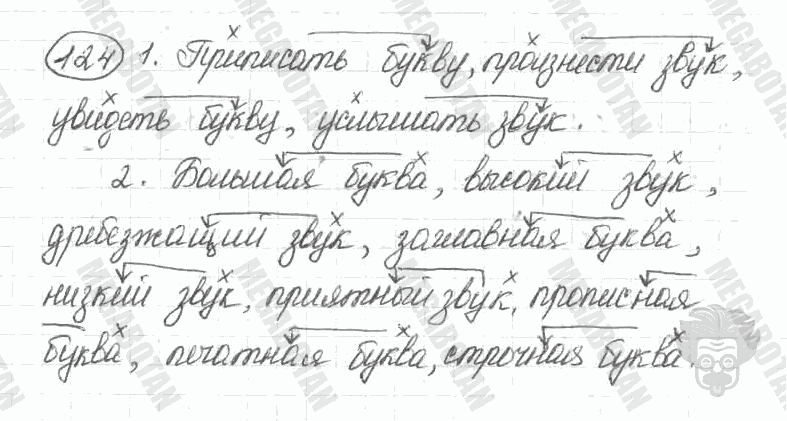 124 1. Приписать букву, произнести звук,
увидеть букву, услышать звук.
2. Большая буква, высокий звук,
дребезжащий звук, заглавная буква,
низкий звук, приятный звук, прописная
буква, печатная буква, строчная буква.
MEGABOTAN